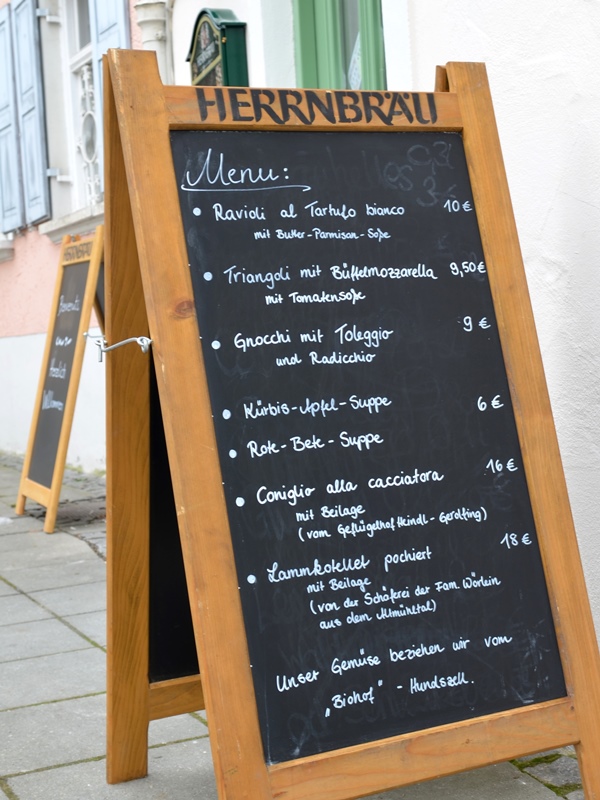 HERRNBRÄU
Menu:
• Ravioli al Tartufo bianco 10 €
mit Butter-Parmisan-Soße
• Triangoli mit Büffelmozzarella 9,50 €
mit Tomatensoße
• Gnocchi mit Toleggio 9 €
und Radicchio
• Kürbis-Apfel-Suppe 6 €
• Rote-Bete-Suppe
• Coniglio alla cacciatora 16 €
mit Beilage
(vom Geflügelhof Heindl-Gerolfing)
• Lammkotellet pochiert 18 €
mit Beilage
(von der Schäferei der Fam. Wörlein
aus dem Altmühltal)
Unser Gemüse beziehen wir vom
„Biohof" - Hundszell.
HERRNBRÄU
Benvenuti
Herzlich
Willkommen